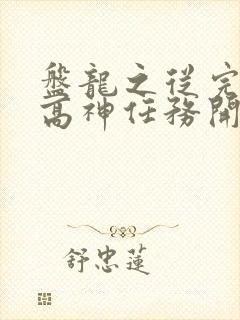 盤龍之從完
高神任務開
舒忠蓮